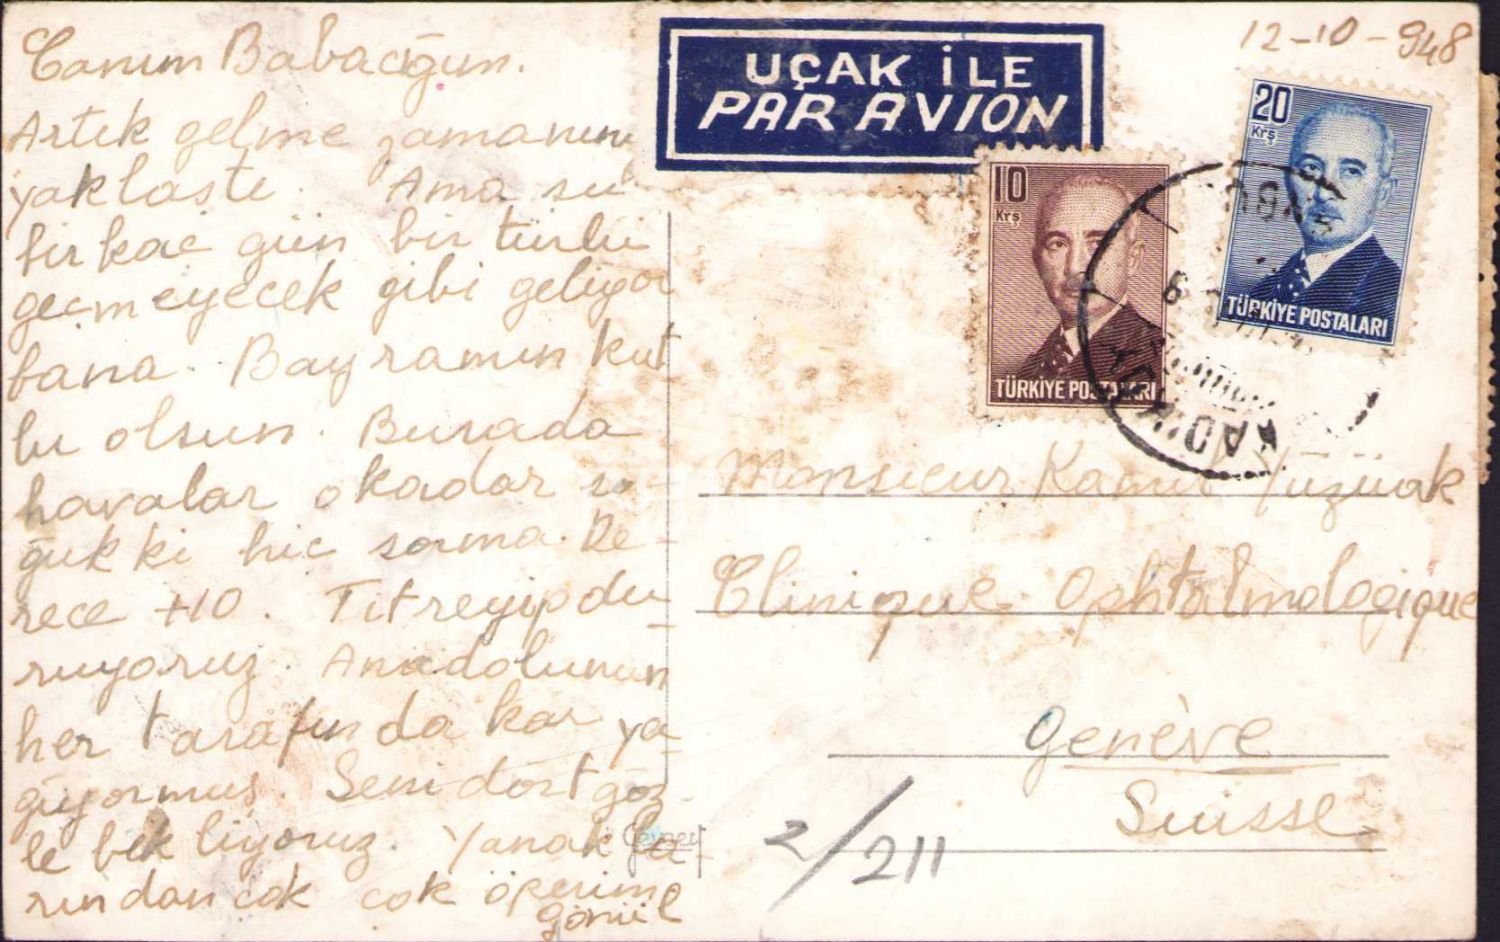 12-10-948
Canım Babacığım.
Artık gelme zamanın
yaklaştı. Ama su
bir kac gün bir türlü
geçmeyecek gibi geliyor
bana. Bayramın kut
lu olsun. Burada
havalar o kadar so
ğuk ki hic sorma. De-
rece +10. Titreyip du
ruyoruz. Anadolunun
her tarafında kar ya
ğıyormuş. Seni dört göz
le bekliyoruz. Yanakla-
rından cok cok öperim
Gönül
UÇAK İLE
PAR AVION
10
Krş
TÜRKİYE POSTALARI
20
Krş
TÜRKİYE POSTALARI
Monsieur Kamil Yüzüak
Clinique Ophtalmologique
Genève
Suisse
2/211
Gevaert